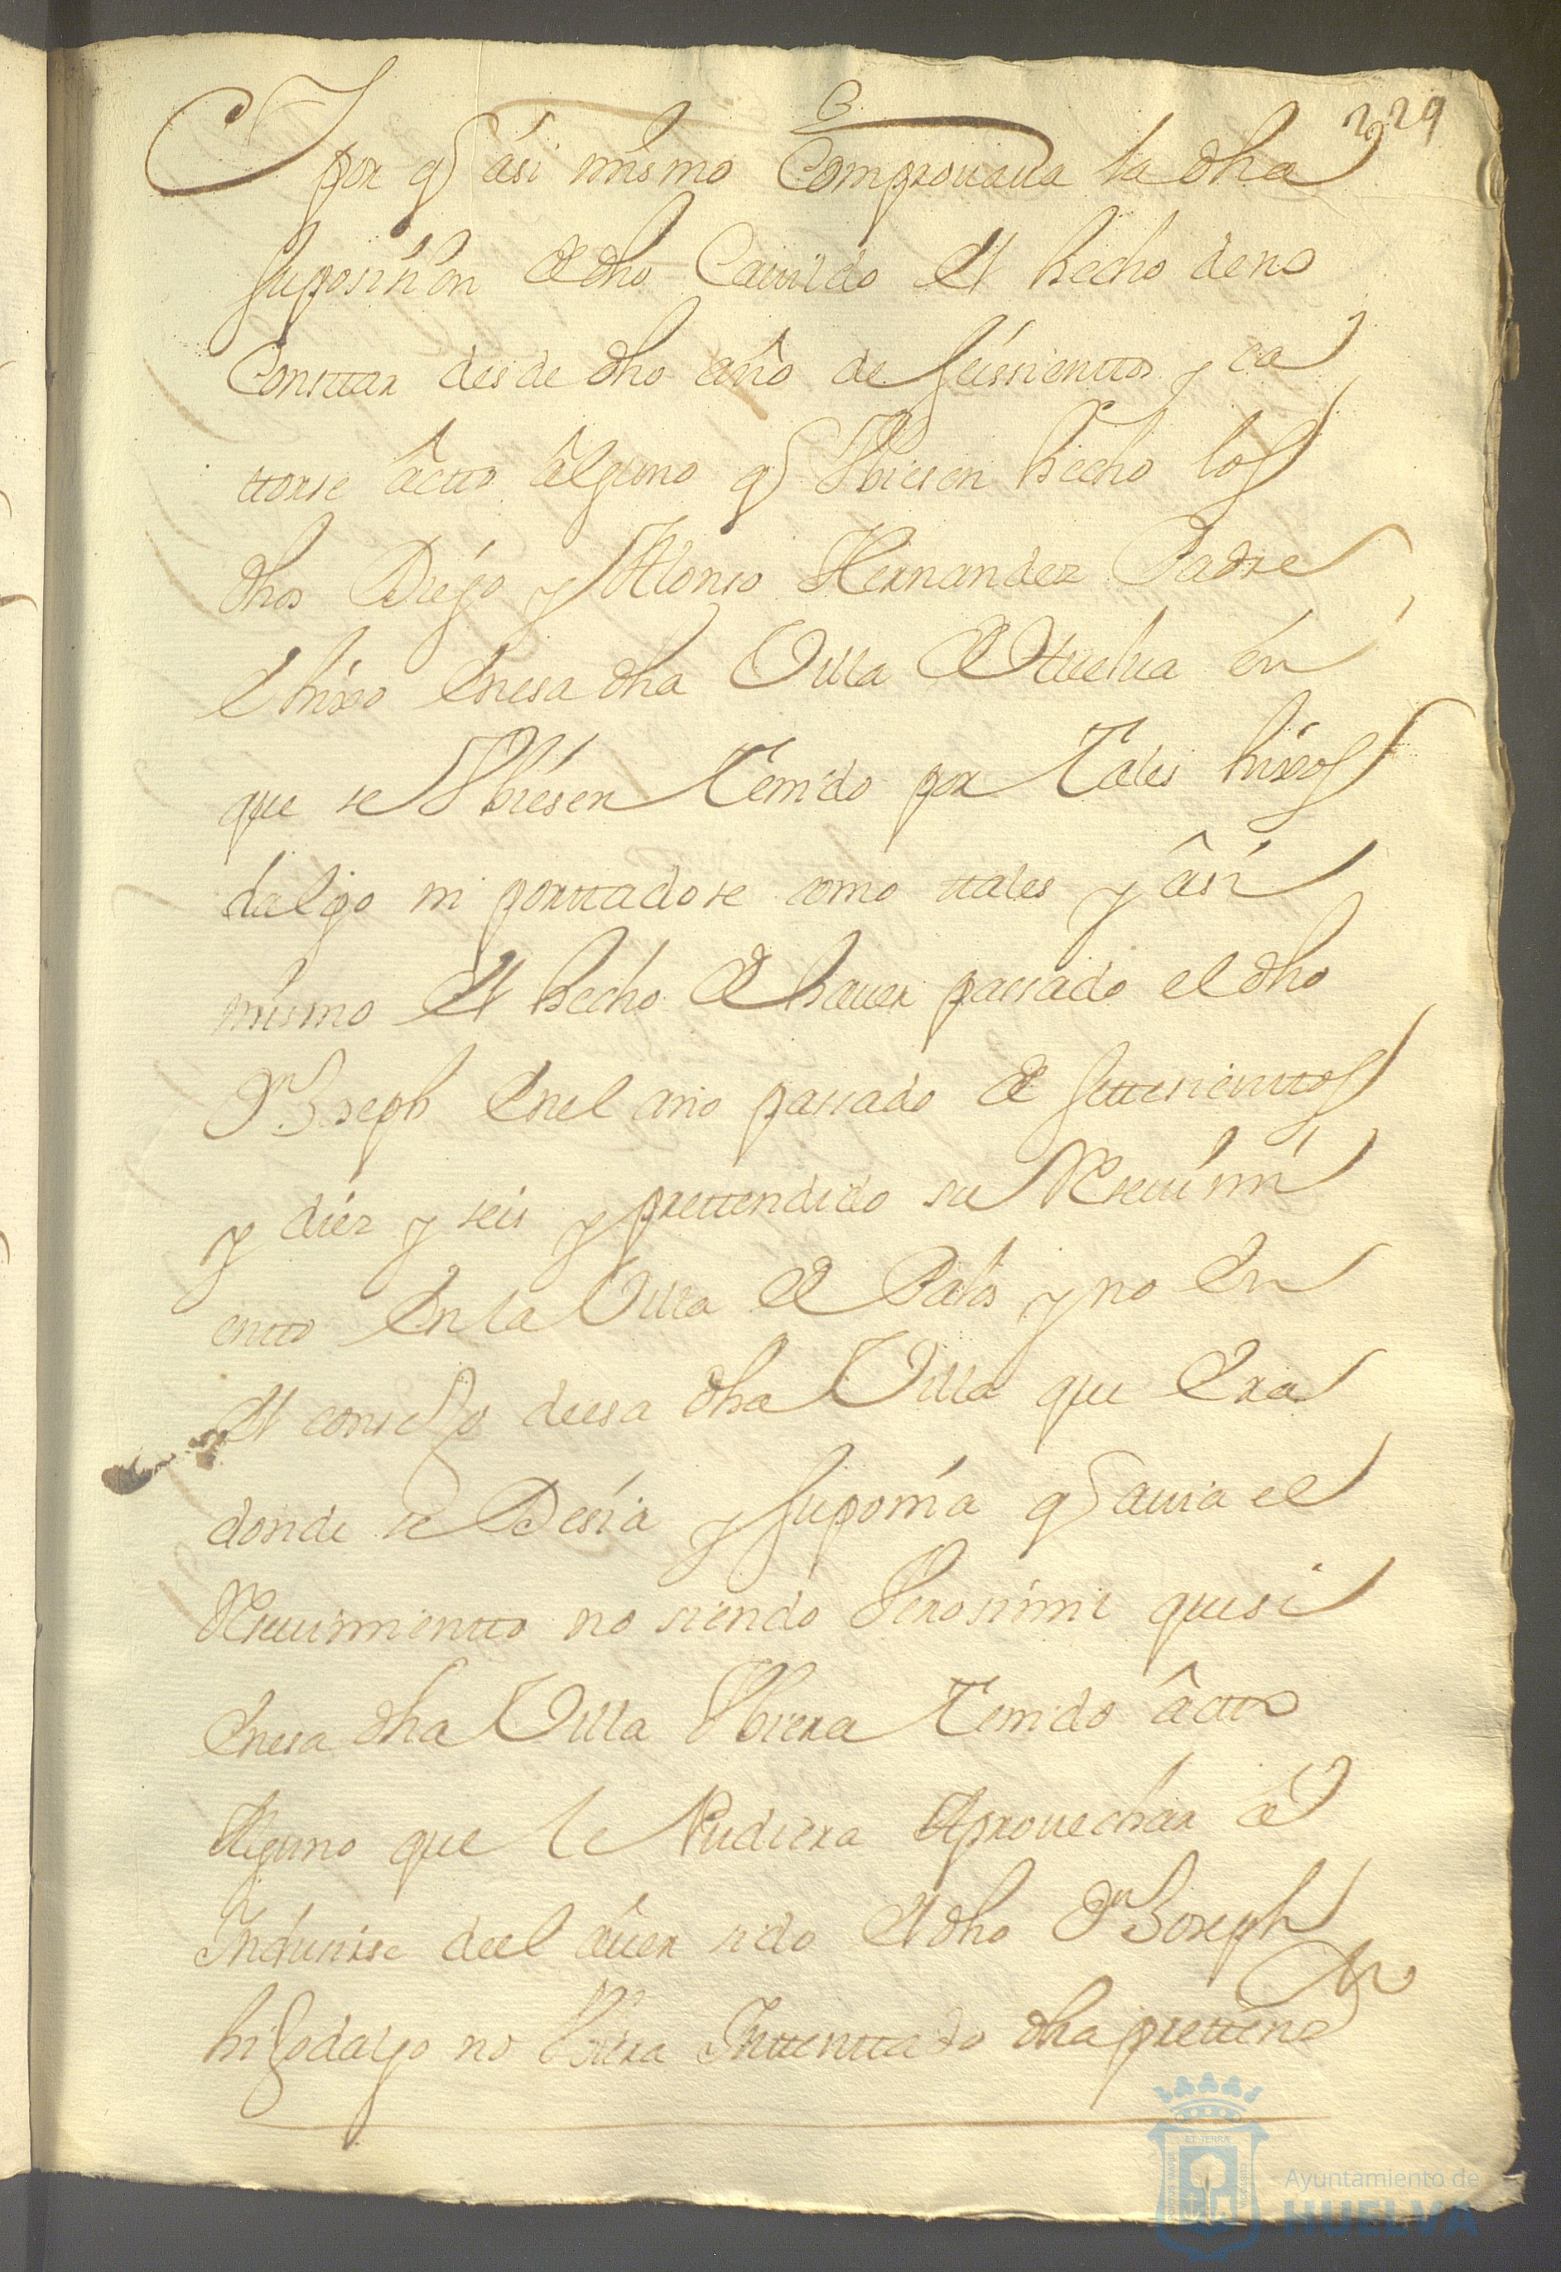 229
Y por q asi mismo Comprouaua la dha
suposision de dho Cauildo el hecho de no
Consttar desde dho año de seissienttos y ca
ttorse actto alguno q Vbiesen hecho los
dhos Diego y Alonso Hernandez Padre
e hixo en esa dha Villa de Huelua en
que se Vbiesen tenido por tales hixos
dalgo ni porttadose como ttales y asi
mismo el hecho de hauer passado el dho
Dn Joseph en el año passado de settesienttos
y diez y seis y prettendido su Resiuimi
entto en la Villa de Palos y no en
el consejo de esa dha Villa que era
donde se Desia y suponia q auia el
Resiuimientto no siendo Verosimil que si
en esa dha Villa Vbiera tenido actto
Alguno que le Pudiera Aprouechar a
Indusirse de el auer sido el dho Dn Joseph
hijodalgo no Vbiera Inttenttado dha prettenn
Ayuntamiento de
HUELVA